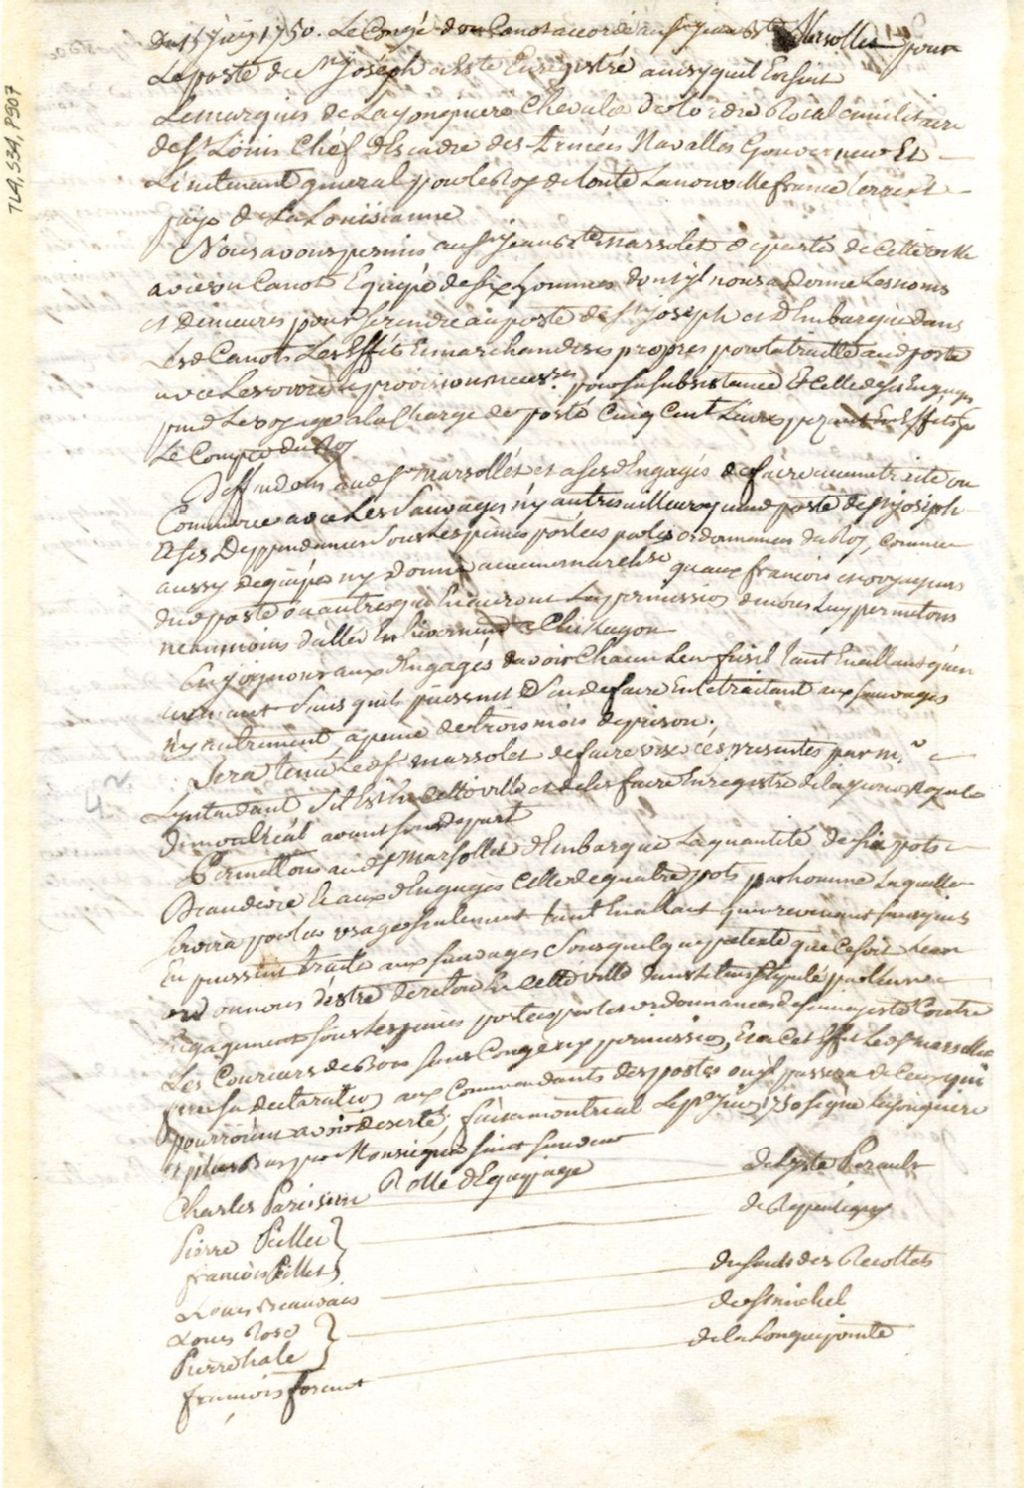 Du 15 Juin 1750. Le Congé d'un Canot accordé au Sr Jean Bte Marsollet pour
Le poste de St Joseph a Esté Enregistré ainsy quil Ensuit
Lemarquis de Layonquiere Chevalier De lordre Roial & militaire
de St Louis Chef d'Escadre des Armées Navalles Gouverneur Et
Lieutenant general pour le Roy de toute La nouvelle france terres &
pays de La Louisianne
Nous avons permis au Sr Jean Bte Marsolet de partir de cette ville
avec un Canot Equipé de six hommes dont jl nous a Donné Les noms
et demeures pour se rendre au poste de St Joseph et d'Embarquer dans
Led Canot Les Effets & marchandises propres pour la traitte aud poste
avec Les vivres & provisions necessres pour sa subsistance Et celle de ses Engagés
pend Le voyage a la Charge de porter Cinq Cent Livres pezant En Effets pr
Le Compte du Roy
Deffendons aud Sr Marsollet et a ses d'Engagés de faire aucune traite ou
Commerce avec Les Sauvages n'y autres ailleurs quaud poste de St Joseph
& ses Deppendances Sous Les peines portées par les ordonnances du Roy, comme
aussy dequiper n'y donner aucune marchse quaux francois et voyageurs
dud poste ou autres qui En auront La permission de nous Luy permettons
neanmoins daller En hivernement a Chikagou
Enjoignons aux d'Engagés davoir Chacun Leur fusil tant En allant qu'en
revenant Sans quils puissent S'en defaire En Le traitant aux sauvages
n'y autrement, a peine de trois mois de prison.
Sera tenu Led Sr Marsolet de faire viser ces presentes par mr
Lyntendant S'il Est En cette ville et de les faire Enregistrer de la
de montréal avant son depart
Permettons aud Sr Marsollet d'Embarquer La quantité de six pots
Deaudevie Et aux d'Engagés Celle de quatre pots par homme Laquelle
servira pour leur usage seulement tant En allant quen revenant sans quils
En puissent traiter aux sauvages sous quelque pretexte que ce soit Leur
ordonnons d'estre de retour En cette ville dans le tems stipulé par Leur
Engagement sous Les peines portées par les ordonnances de sa majesté Contre
Les Coureurs de Bois sans Congé n'y permission, Et a cet Effet Led Sr Marsollet
fera sa declaration aux Commandants des postes ou jl passera de Ceux qui
pourroient avoir deserté, fait a montréal Le Juin 1750 signé Lajonquiere
et plus Bas par Monseigneur saint sauveur
Rolle d'Equipage
Charles Parisien de Perault
Pierre Pillet } de Repentigny
francois Pillet }
Louis Beauvais du Sault des Recollets
Louis Rose } de St michel
Pierre hale }
francois de la Longue pointe
4
TL4, S34, P907